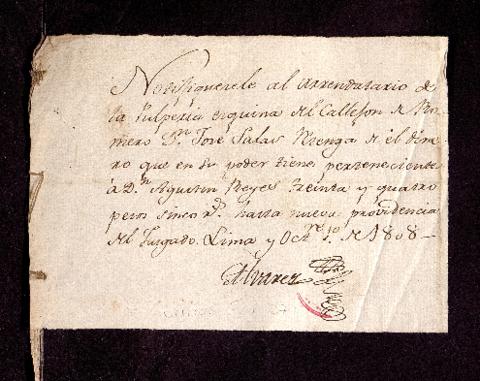 Notifiquesele al arrendatario de
la Pulperia esquina del Callejon de Ro-
mero D.n José Salas retenga de el dine-
ro que en su poder tiene perteneciente
à D.n Agustin Reyes treinta y quatro
pesos sinco r.s hasta nueva providencia
del Jusgado. Lima y Oct.re 10. de 1808
Alvarez